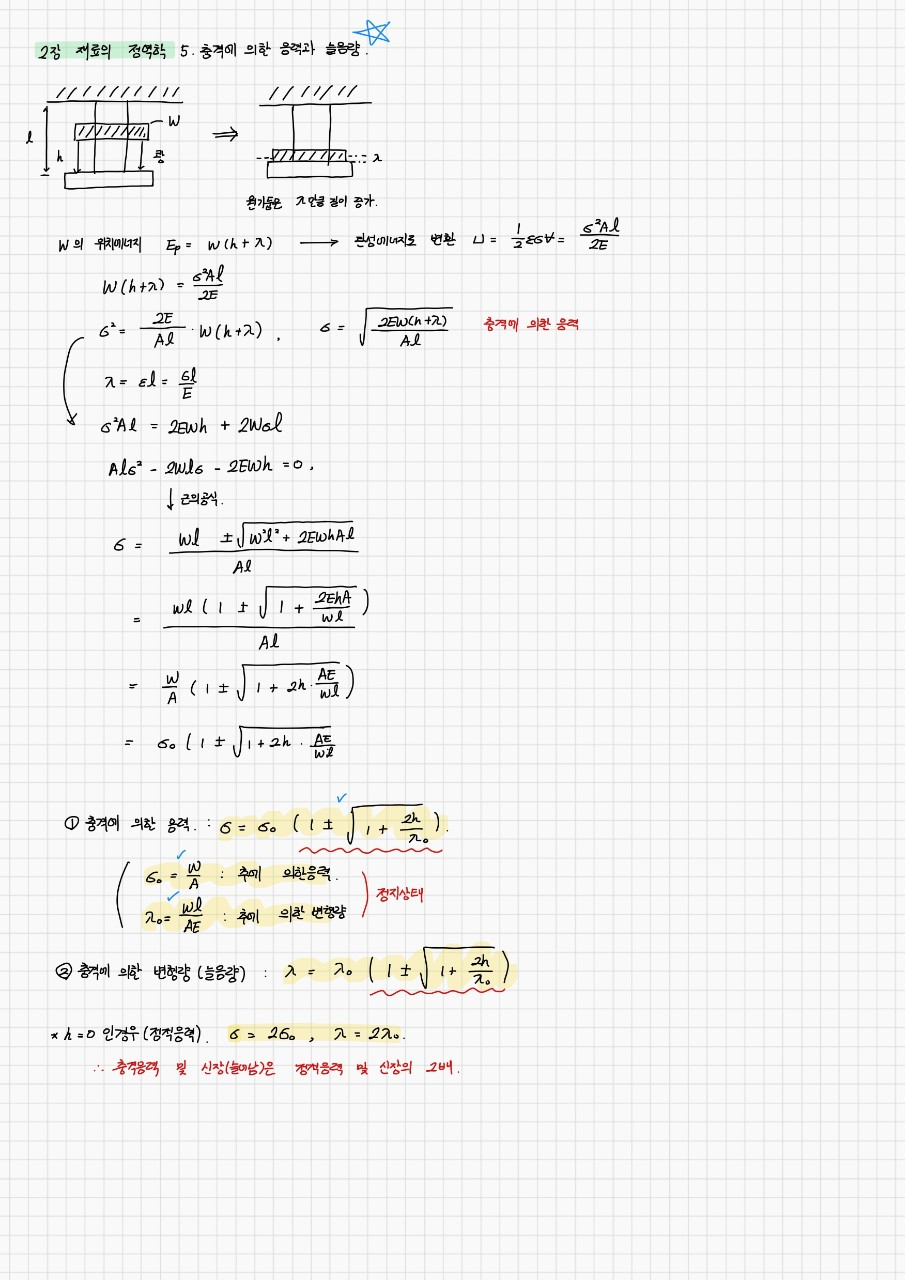 2장 재료의 정역학 5. 충격에 의한 응력과 늘음량.
W
l
h
쾅
⇒
λ
원기둥은 λ만큼 길이 증가.
W의 위치에너지 Ep = W(h+λ) ⟶ 탄성에너지로 변환 U = 1/2 εσV = σ²Al/2E
W(h+λ) = σ²Al/2E
σ² = 2E/Al · W(h+λ), σ = √(2EW(h+λ)/Al) 충격에 의한 응력
λ = εl = σl/E
σ²Al = 2EWh + 2Wσl
Alσ² - 2Wlσ - 2EWh = 0,
↓ 근의공식.
σ = (Wl ±√(W²l² + 2EWhAl))/Al
= Wl(1 ± √(1 + 2EhA/Wl))/Al
= W/A (1 ± √(1 + 2h·AE/Wl))
= σ₀ (1 ± √(1+2h · AE/Wl)
① 충격에 의한 응력. : σ = σ₀ (1 ± √(1 + 2h/λ₀)).
σ₀ = W/A : 추에 의한응력.
정지상태
λ₀ = Wl/AE : 추에 의한 변형량
② 충격에 의한 변형량 (늘음량) : λ = λ₀ (1 ± √(1 + 2h/λ₀))
* h=0 인경우 (정적응력). σ = 2σ₀ , λ = 2λ₀.
∴ 충격응력 및 신장(늘어남)은 정적응력 및 신장의 2배.